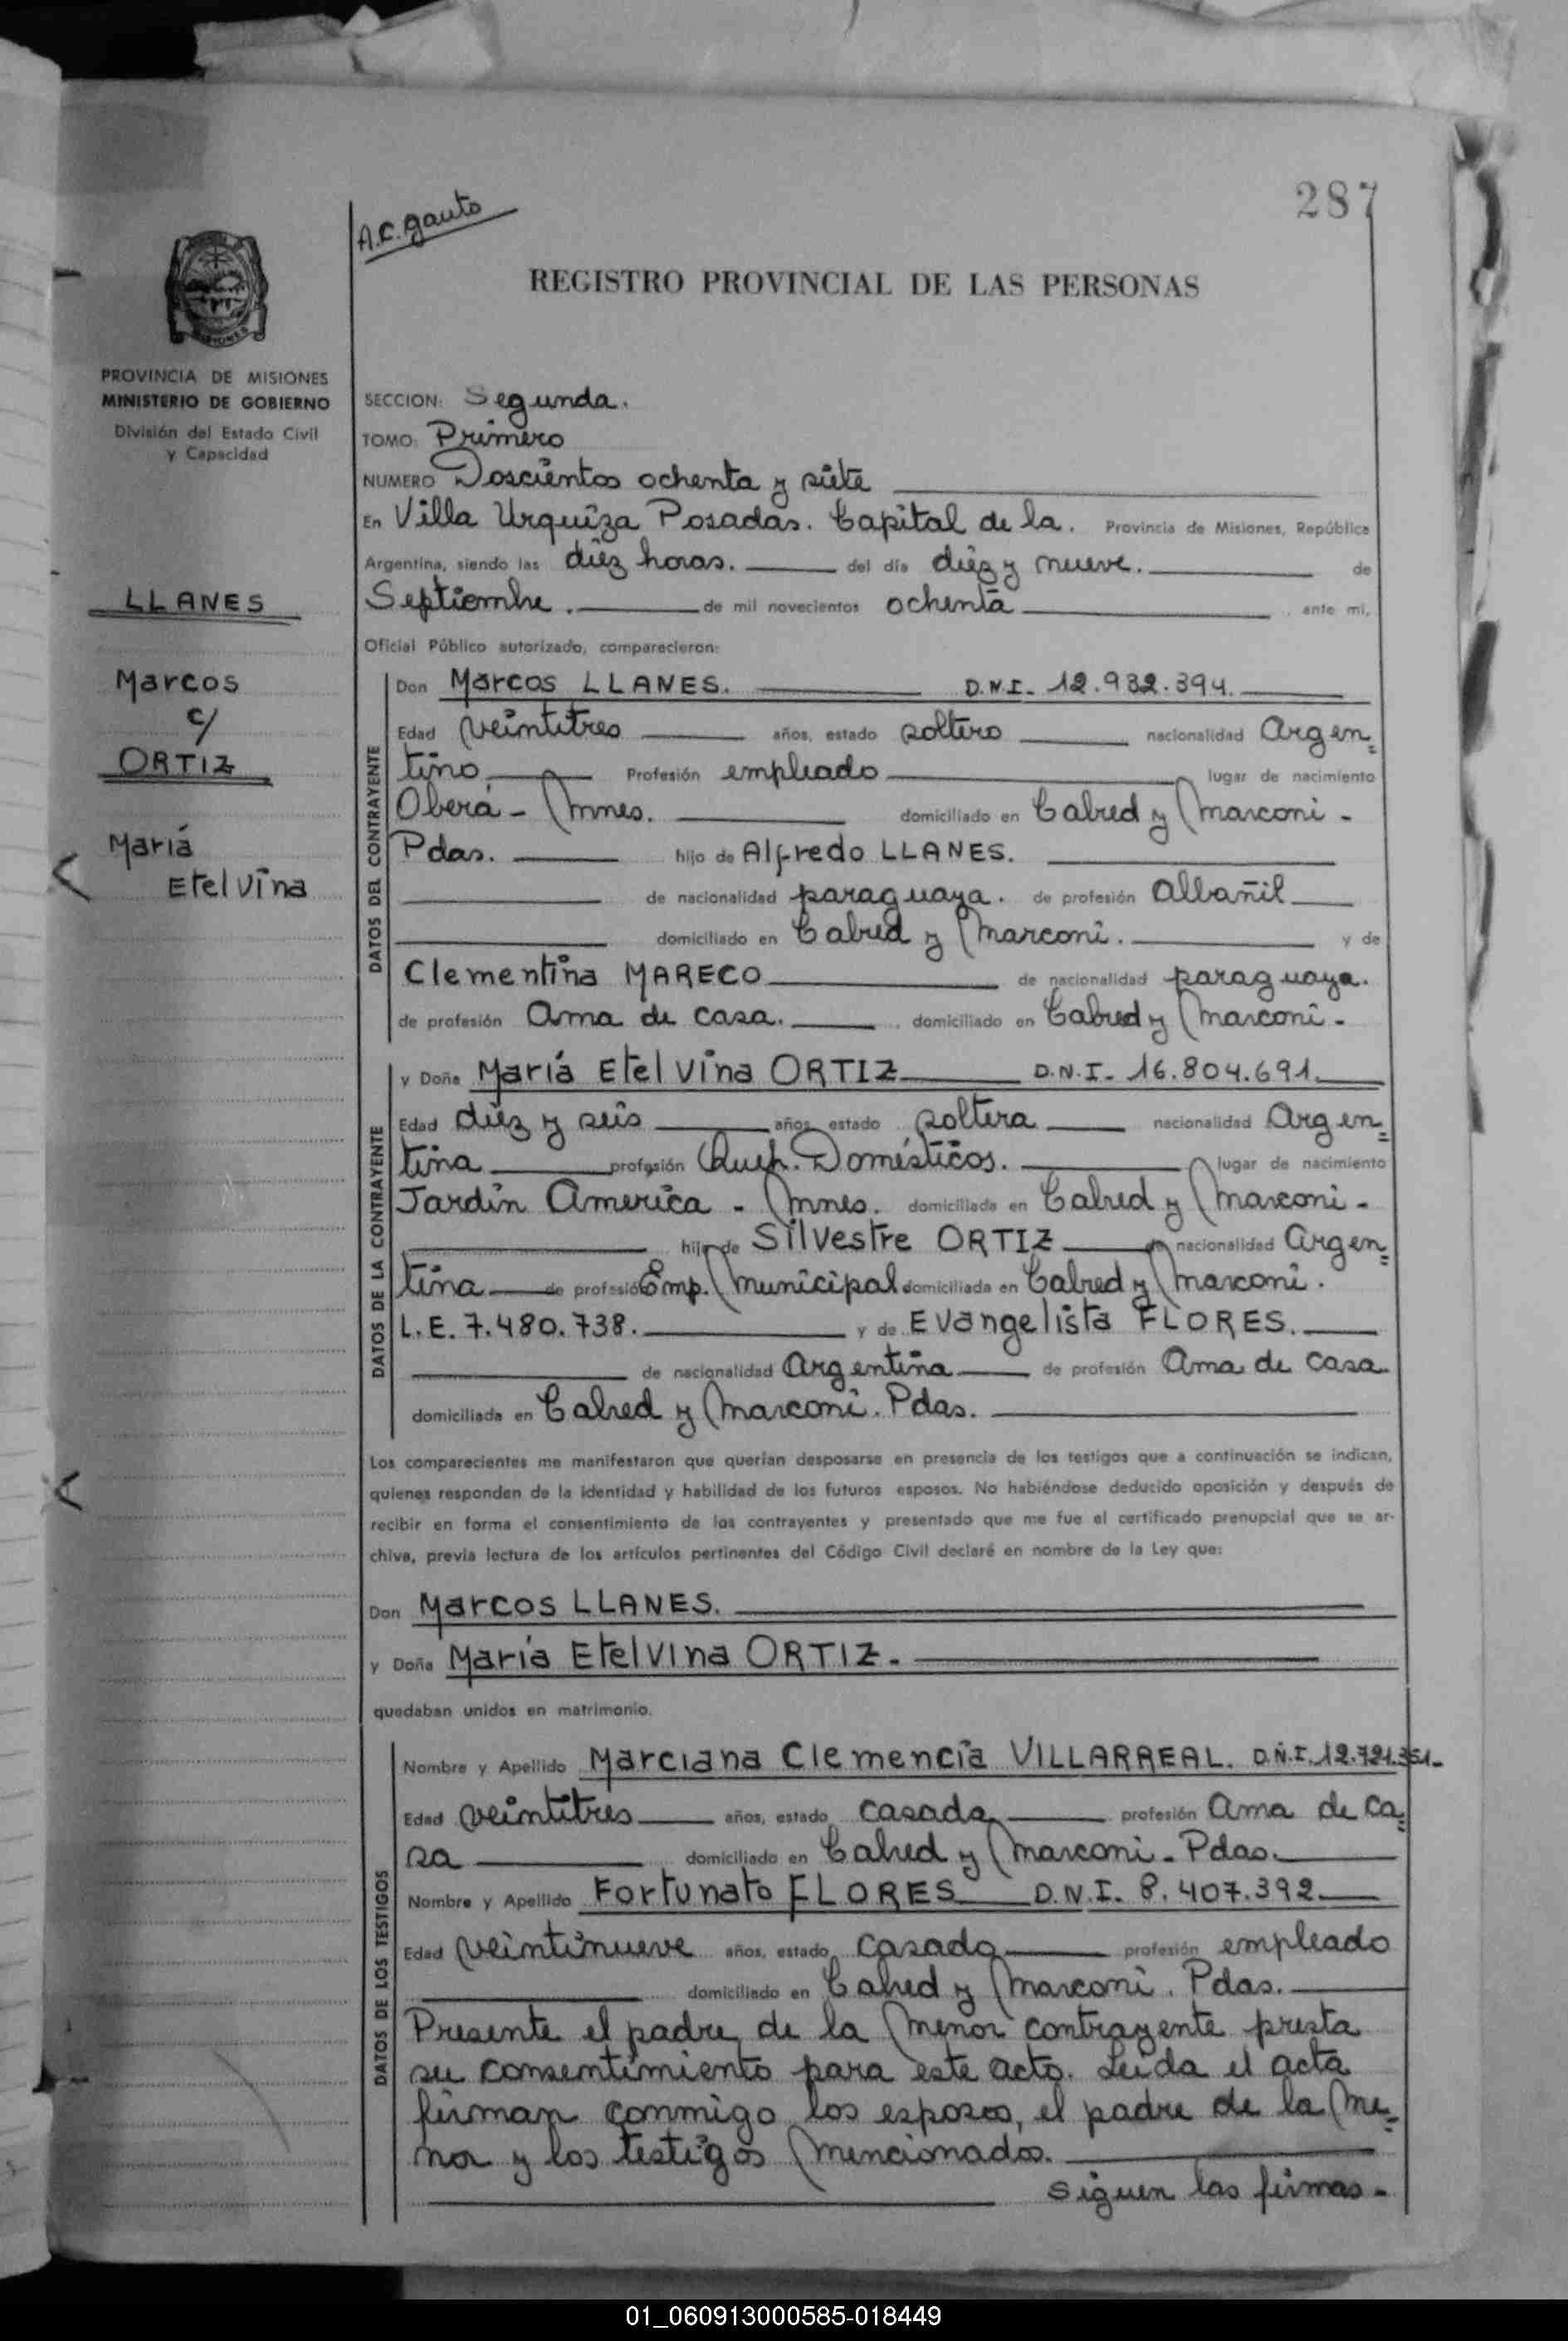 287
A.C. Gauto
REGISTRO PROVINCIAL DE LAS PERSONAS
PROVINCIA DE MISIONES
MINISTERIO DE GOBIERNO
División del Estado Civil
y Capacidad
LLANES
Marcos
c/
ORTIZ
María
Etelvina
SECCION: Segunda.
TOMO: Primero
NUMERO Doscientos ochenta y siete
En Villa Urquiza Posadas. Capital de la. Provincia de Misiones, República
Argentina, siendo las diez horas. del día diez y nueve. de
Septiembre. de mil novecientos ochenta , ante mi,
Oficial Público autorizado, comparecieron:
DATOS DEL CONTRAYENTE
Don Marcos LLANES. D.N.I. 12.932.394.
Edad veintitres años, estado soltero nacionalidad Argen=
tino Profesión empleado lugar de nacimiento
Oberá - Mnes. domiciliado en Cabred y Marconi -
Pdas. hijo de Alfredo LLANES.
de nacionalidad paraguaya. de profesión Albañil
domiciliado en Cabred y Marconi. y de
Clementina MARECO de nacionalidad paraguaya.
de profesión Ama de casa. domiciliado en Cabred y Marconi -
DATOS DE LA CONTRAYENTE
y Doña María Etelvina ORTIZ D.N.I- 16.804.691.
Edad diez y seis años, estado soltera nacionalidad Argen=
tina profesión Queh. Domésticos. lugar de nacimiento
Jardín America - Mnes. domiciliada en Cabred y Marconi -
hija de Silvestre ORTIZ nacionalidad Argen=
tina de profesión Emp. Municipal domiciliada en Cabred y Marconi.
L.E. 7.480.738. y de Evangelista FLORES.
de nacionalidad Argentina de profesión Ama de casa
domiciliada en Cabred y Marconi. Pdas.
Los comparecientes me manifestaron que querían desposarse en presencia de los testigos que a continuación se indican,
quienes responden de la identidad y habilidad de los futuros esposos. No habiéndose deducido oposición y después de
recibir en forma el consentimiento de los contrayentes y presentado que me fue el certificado prenupcial que se ar-
chiva, previa lectura de los artículos pertinentes del Código Civil declaré en nombre de la Ley que:
Don Marcos LLANES.
y Doña María Etelvina ORTIZ.
quedaban unidos en matrimonio.
DATOS DE LOS TESTIGOS
Nombre y Apellido Marciana Clemencia VILLARREAL. D.N.I. 12.721.351-
Edad veintitres años, estado casada profesión Ama de ca=
sa domiciliado en Cabred y Marconi - Pdas.
Nombre y Apellido Fortunato FLORES D.N.I. 8.407.392
Edad veintinueve años, estado casado profesión empleado
domiciliado en Cabred y Marconi. Pdas.
Presente el padre de la menor contrayente presta
su consentimiento para este acto. Leída el acta
firman conmigo los esposos, el padre de la me=
nor y los testigos mencionados.
siguen las firmas -
01_060913000585-018449